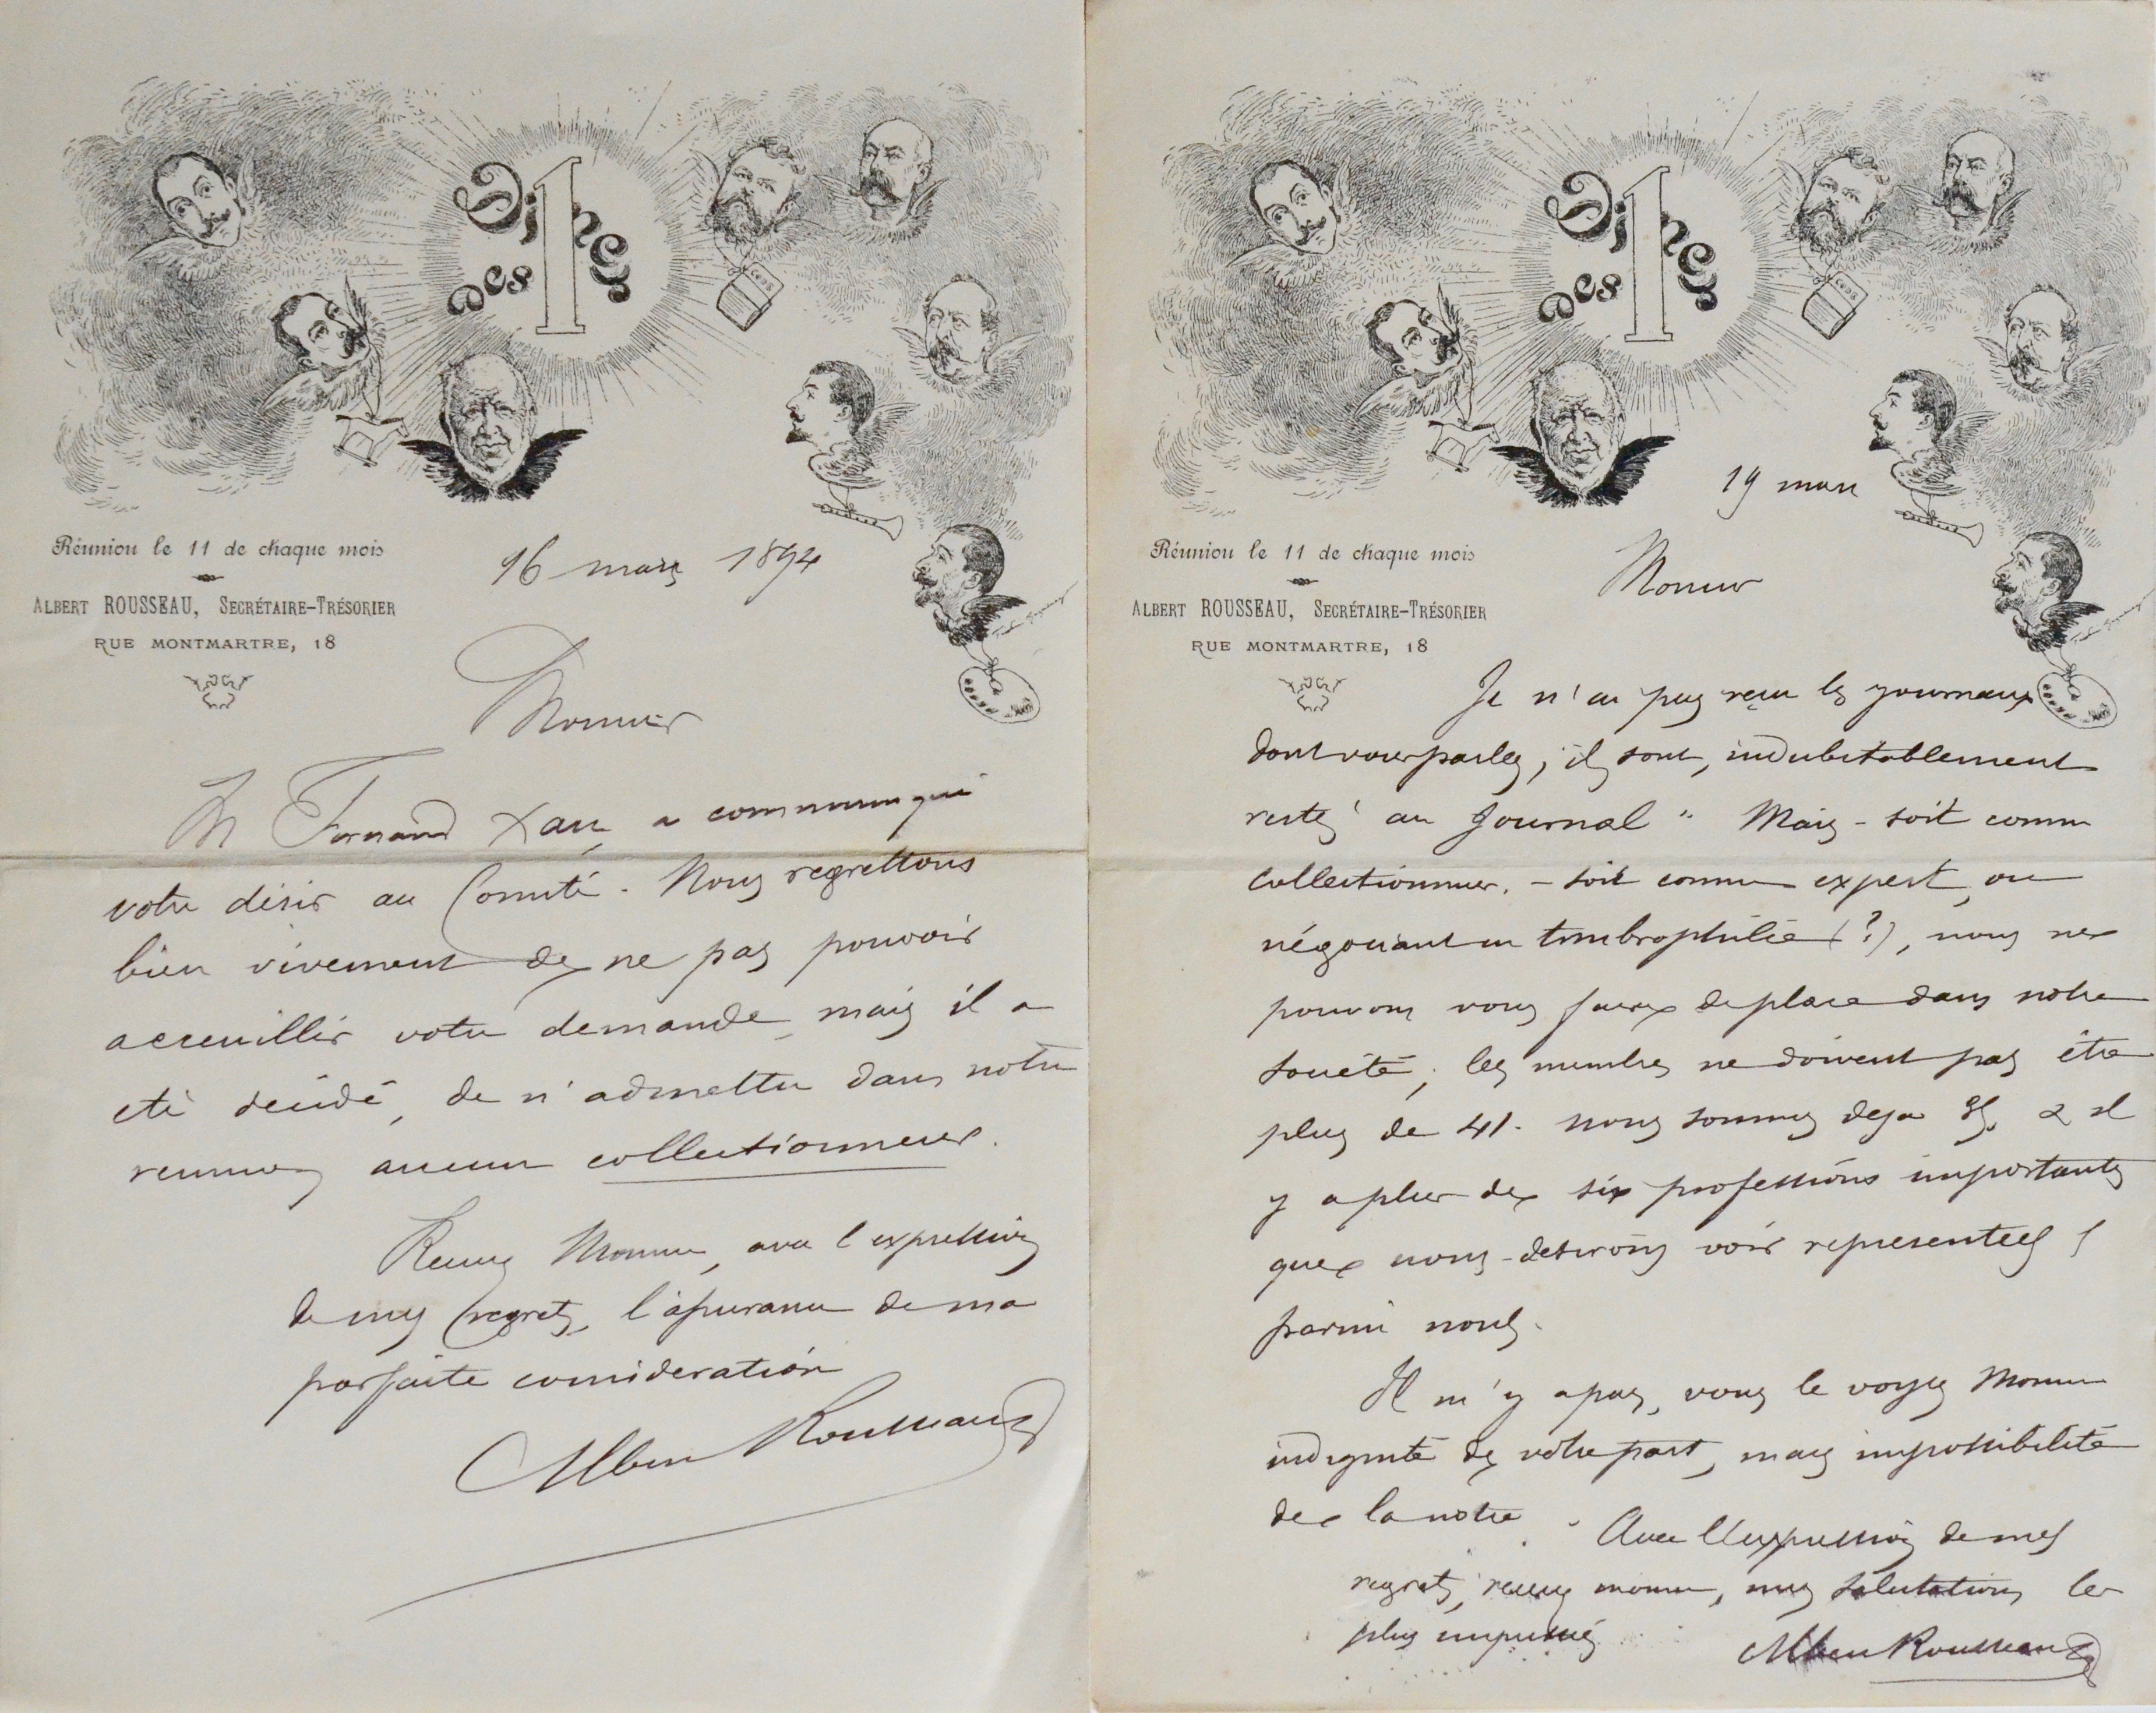 Dîner des 1
Réunion le 11 de chaque mois
ALBERT ROUSSEAU, SECRÉTAIRE-TRÉSORIER
RUE MONTMARTRE, 18
16 mars 1894
Monsieur
M Fernand Xau, a communiqué
votre désir au Comité. Nous regrettons
bien vivement de ne pas pouvoir
accueillir votre demande, mais il a
été décidé, de n'admettre dans notre
reunion aucun collectionneur.
Recevez Monsieur, avec l'expression
de mes regrets, l'assurance de ma
parfaite consideration
Albert Rousseau
Dîner des 1
19 mars
Réunion le 11 de chaque mois
ALBERT ROUSSEAU, SECRÉTAIRE-TRÉSORIER
RUE MONTMARTRE, 18
Monsieur
Je n'ai pas reçu les journaux
dont vous parlez, ils sont, indubitablement
restés au Journal " Mais - soit comme
collectionneur. - soit comme expert, ou
négociant en timbrophilie (?), nous ne
pouvons vous faire de place dans notre
société, les membres ne doivent pas être
plus de 41. nous sommes deja & il
y a plus de six professions importantes
que nous desirons voir representees
parmi nous.
Il n'y a pas, vous le voyez Monsieur
indignité de votre part, mais impossibilité
de la notre. Avec l'expression de mes
regrets, recevez monsieur, mes salutations les
plus empressées
Albert Rousseau